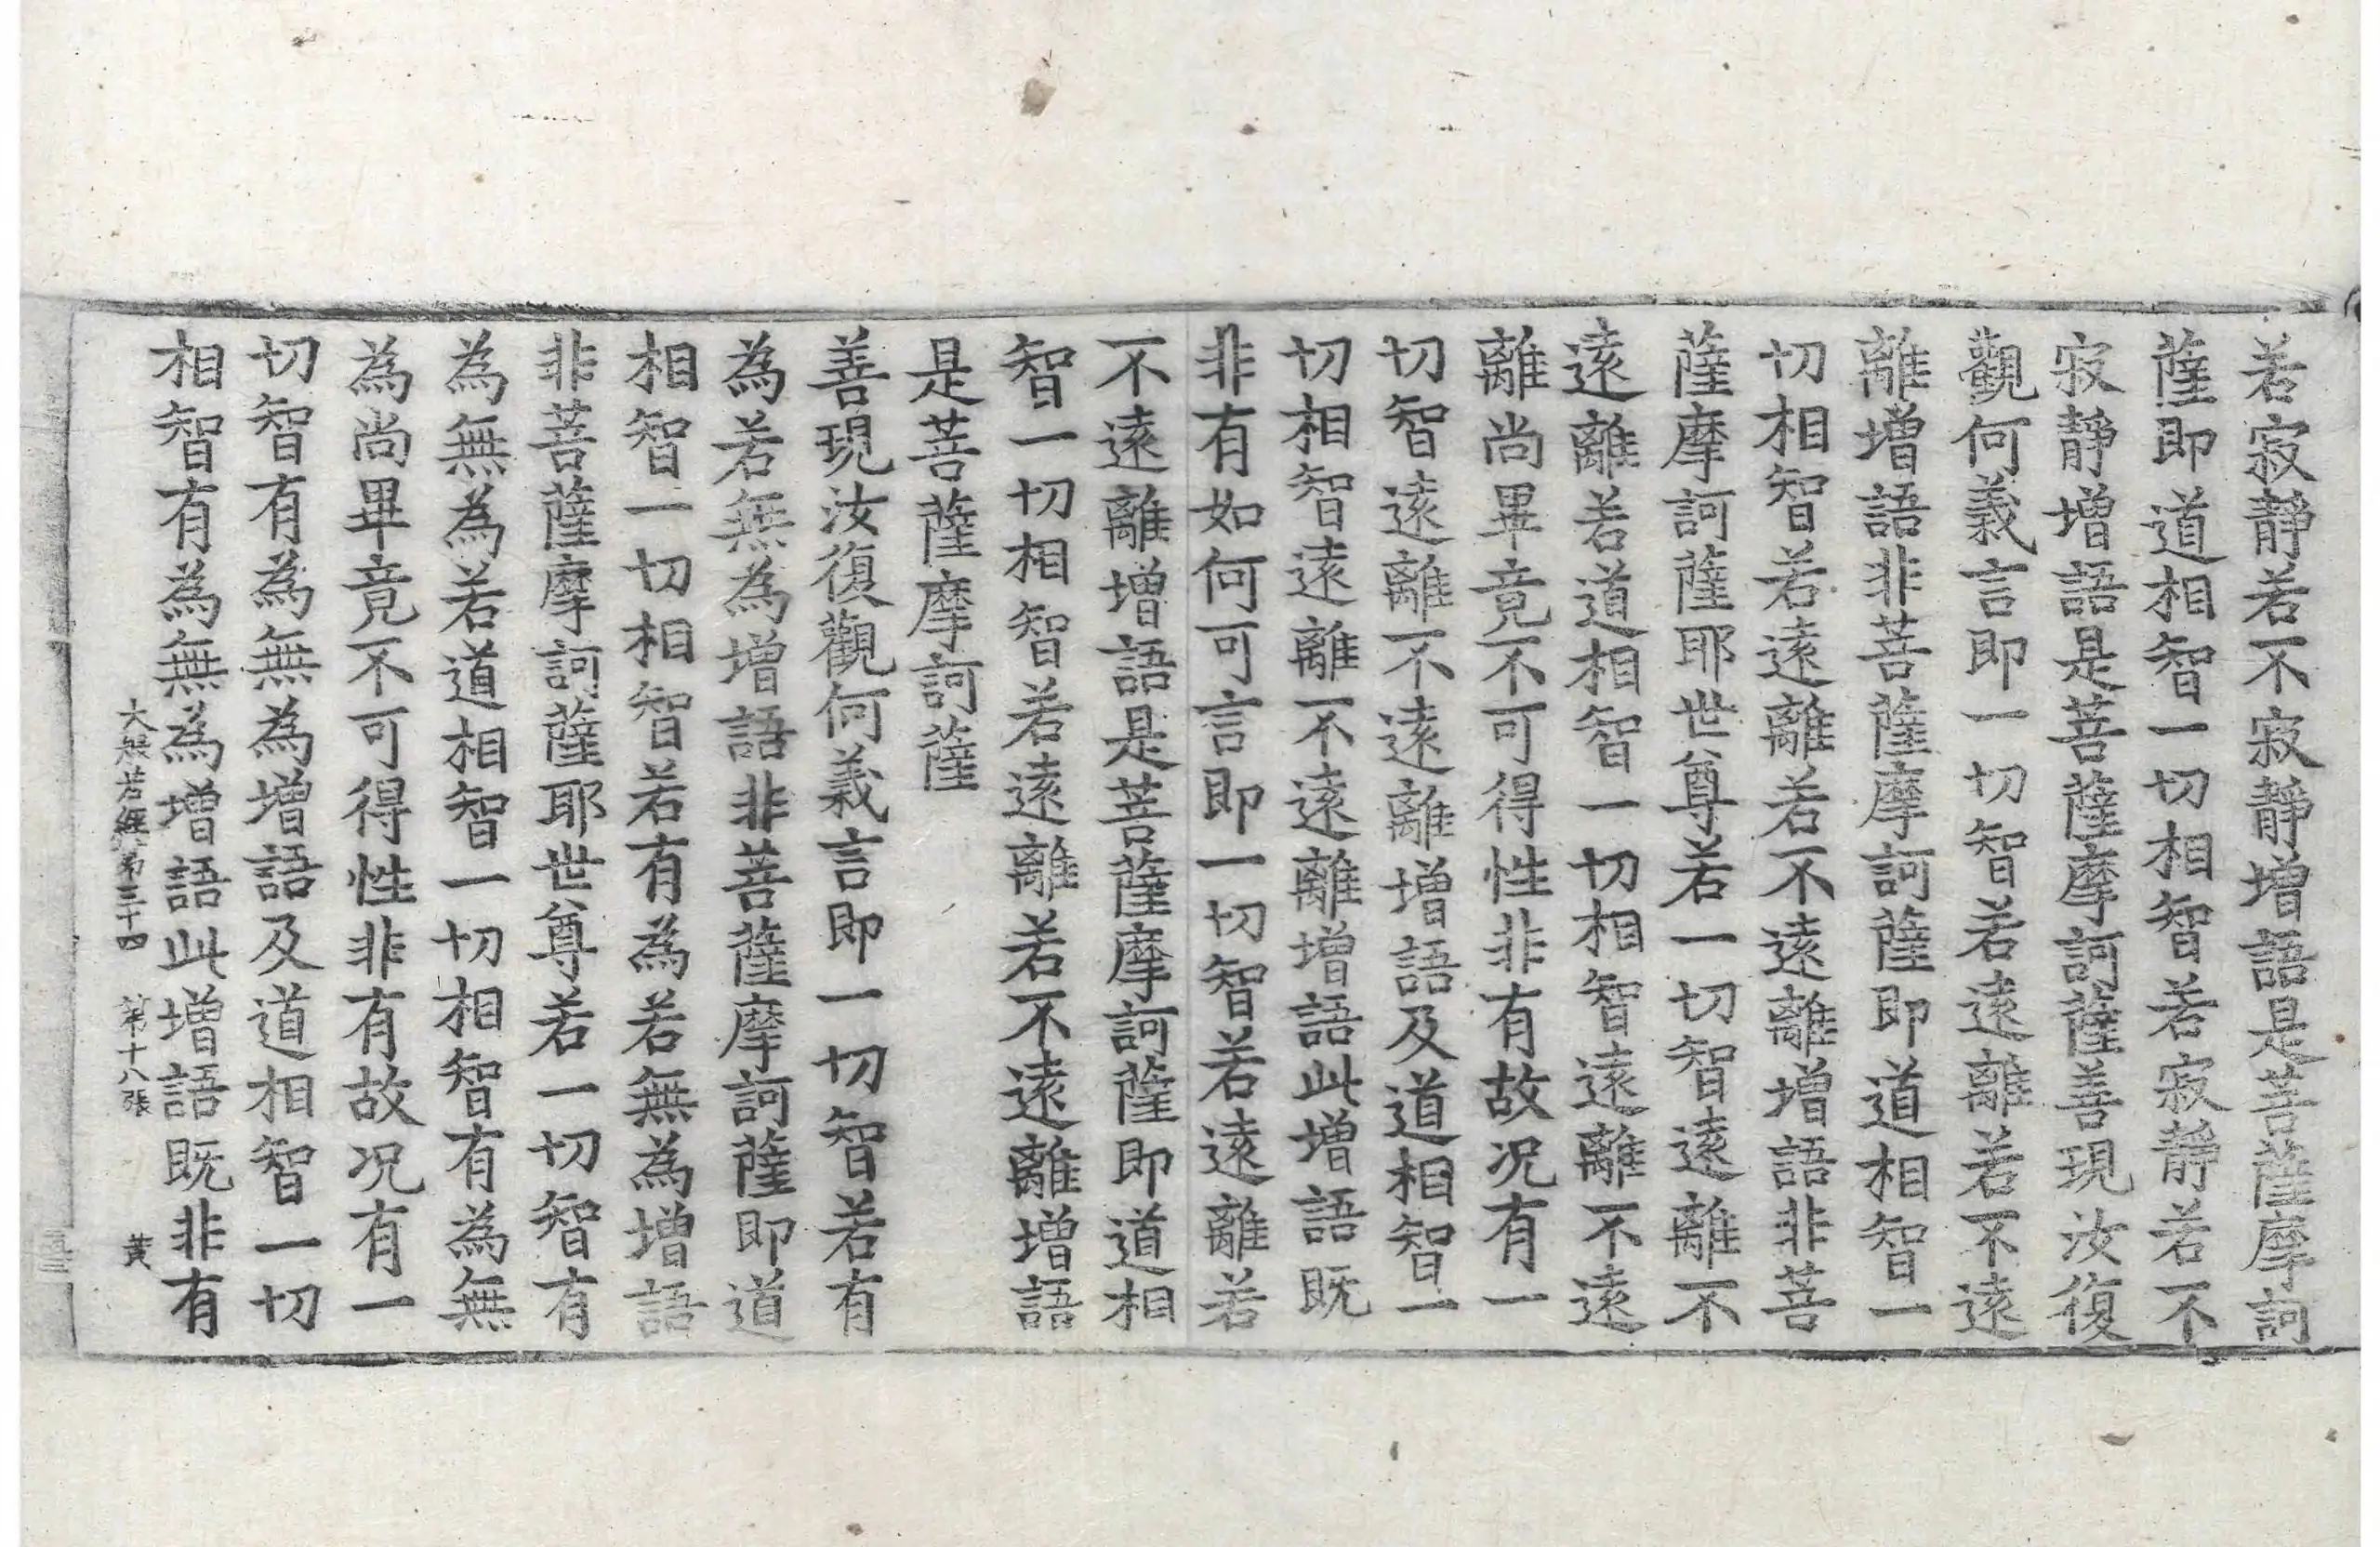 若寂靜若不寂靜增語是菩薩摩訶
薩即道相智一切相智若寂靜若不
寂靜增語是菩薩摩訶薩善現汝復
觀何義言即一切智若遠離若不遠
離增語非菩薩摩訶薩即道相智一
切相智若遠離若不遠離增語非菩
薩摩訶薩耶世尊若一切智遠離不
遠離若道相智一切相智遠離不遠
離尚畢竟不可得性非有故况有一
切智遠離不遠離增語及道相智一
切相智遠離不遠離增語此增語既
非有如何可言即一切智若遠離若
不遠離增語是菩薩摩訶薩即道相
智一切相智若遠離若不遠離增語
是菩薩摩訶薩
善現汝復觀何義言即一切智若有
為若無為增語非菩薩摩訶薩即道
相智一切相智若有為若無為增語
非菩薩摩訶薩耶世尊若一切智有
為無為若道相智一切相智有為無
為尚畢竟不可得性非有故况有一
切智有為無為增語及道相智一切
相智有為無為增語此增語既非有
大般若經第三十四 第十八張 黄